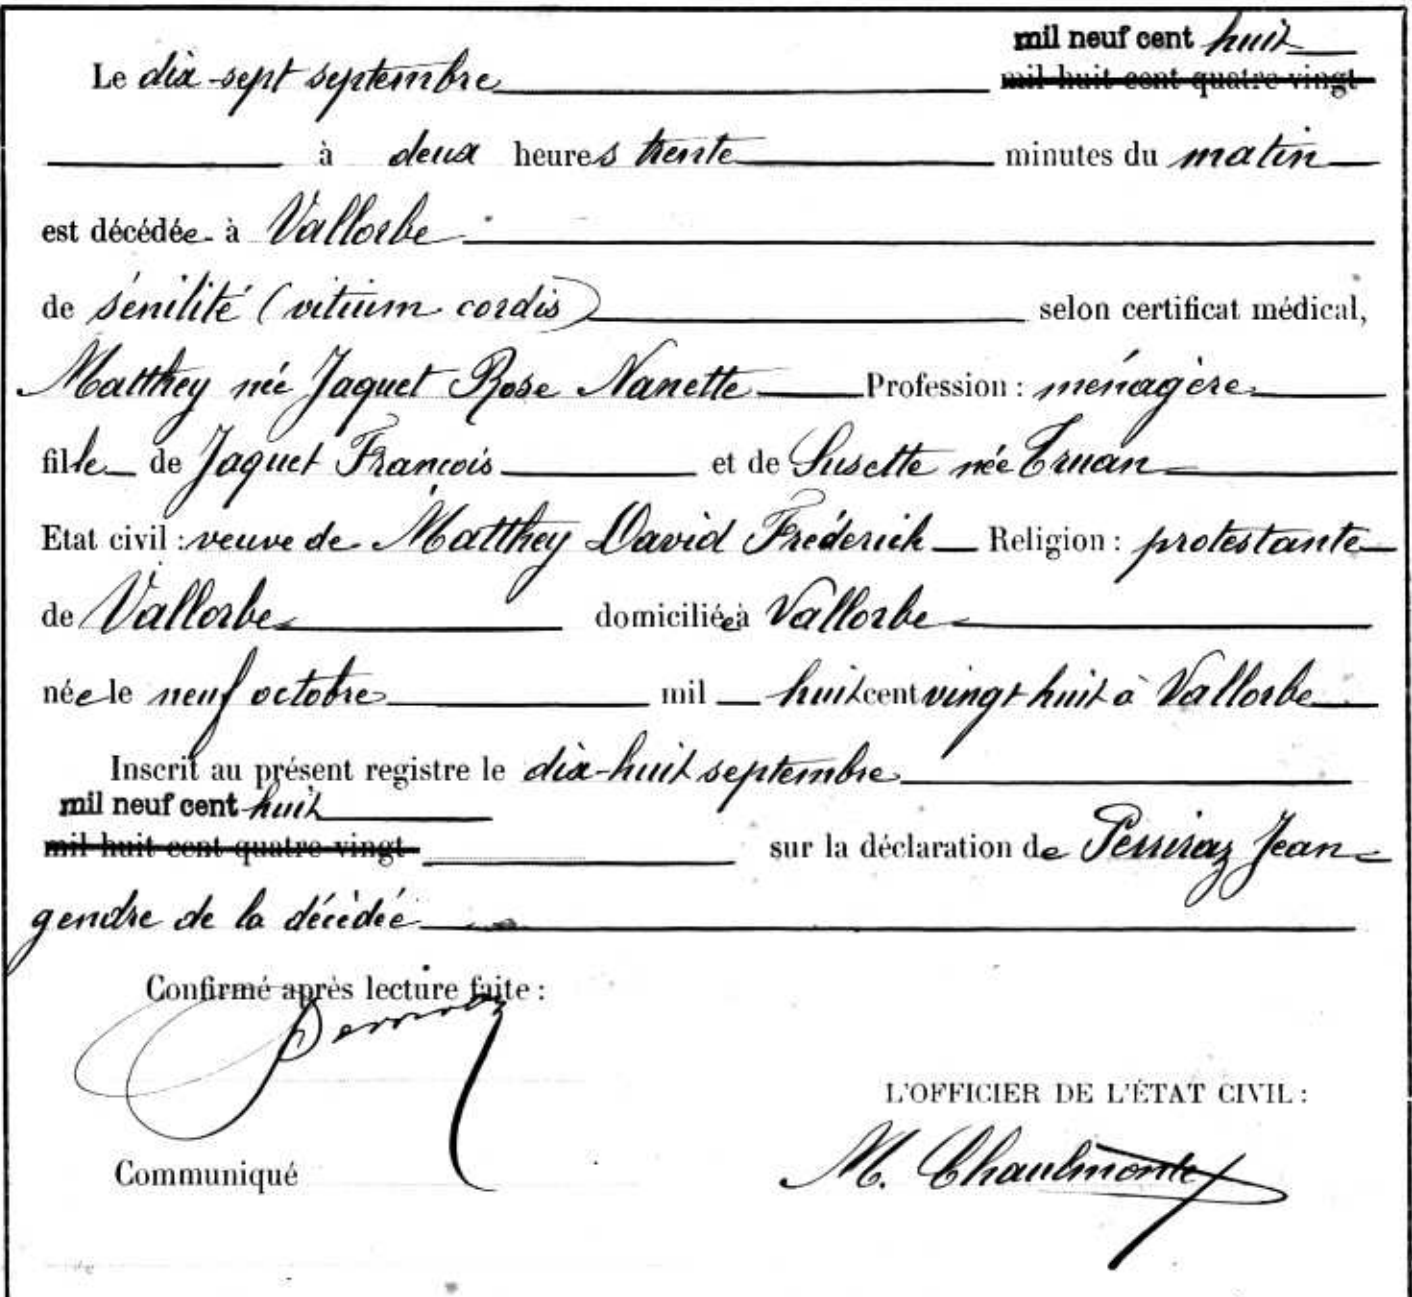 mil neuf cent huit
Le dix-sept septembre mil huit cent quatre-vingt
à deux heures trente minutes du matin
est décédée à Vallorbe
de sénilité (vitium cordis) selon certificat médical,
Matthey née Jaquet Rose Nanette Profession : ménagère
fille de Jaquet François et de Susette née Truan
Etat civil : veuve de Matthey David Fréderich Religion : protestante
de Vallorbe domiciliée à Vallorbe
née le neuf octobre mil huit cent vingt huit à Vallorbe
Inscrit au présent registre le dix-huit septembre
mil neuf cent huit
mil huit cent quatre-vingt sur la déclaration de Perriraz Jean
gendre de la décédée
Confirmé après lecture faite :
L'OFFICIER DE L'ÉTAT CIVIL :
Communiqué M.